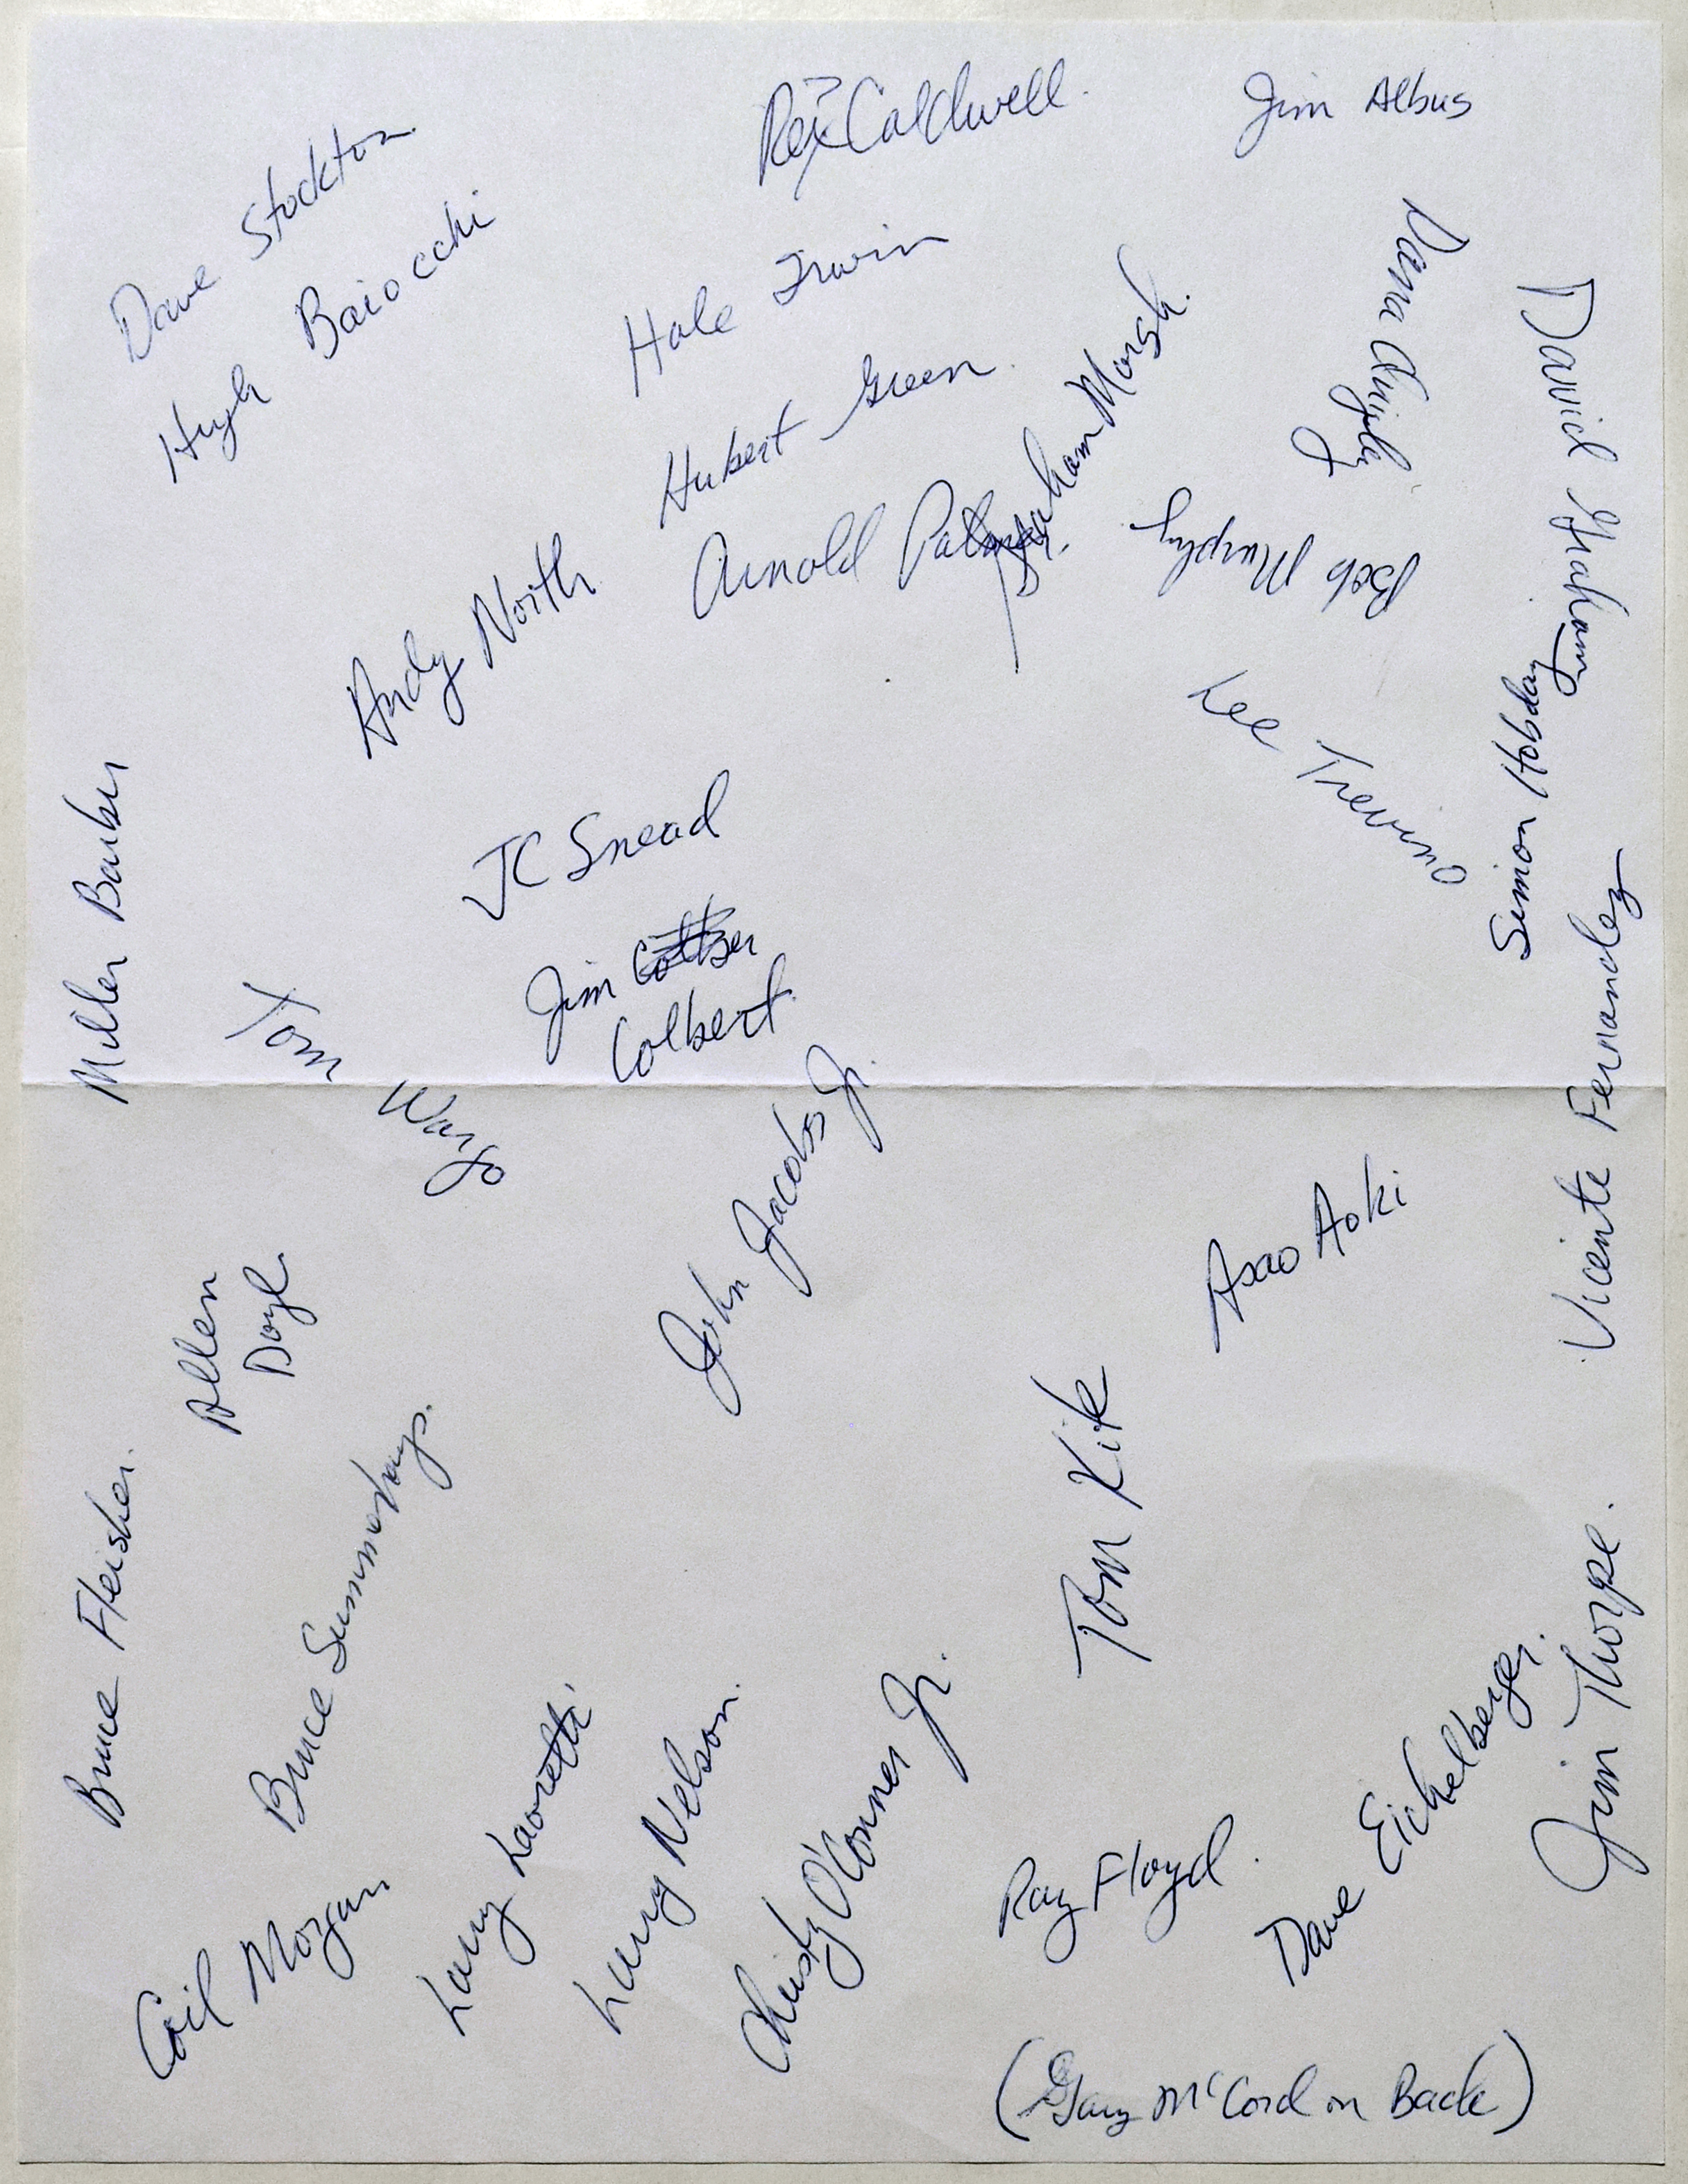 Rex Caldwell.
Jim Albus
Dave Stockton
Hugh Baiocchi
Hale Irwin
Hubert Green
Arnold Palmer
Graham Marsh.
Dana Quigley
David Graham
Bob Murphy
Andy North
Lee Trevino
Simon Hobsday
Miller Barber
JC Snead
Jim
Colbert
Tom Wargo
Vicente Fernandez
John Jacobs Jr.
Isao Aoki
Allen
Doyle
Tom Kite
Bruce Fleisher.
Bruce Summerhays.
Jim Thorpe.
Larry Laoretti
Larry Nelson.
Christy O'Conner Jr.
Ray Floyd.
Dave Eichelberger.
Goil Morgan
(Gary McCord on Back)